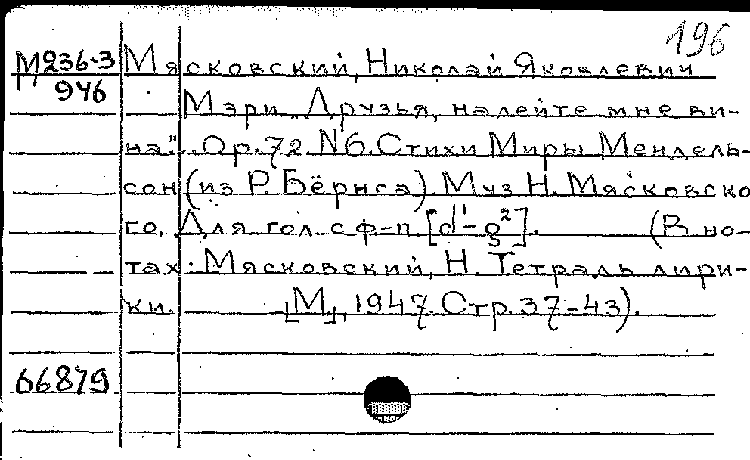 196
М236-3 Мясковский, Николай Яковлевич
946 Мэри. „Друзья, налейте мне ви-
на". Ор.72 N6. Стихи Миры Мендель-
сон (из Р. Бёрнса). Муз Н. Мясковско
го. Для гол. с ф-п [d¹-g²]. (В но-
тах: Мясковский, Н. Тетрадь лири-
ки. [М.], 1947. Стр. 37-43).
66879